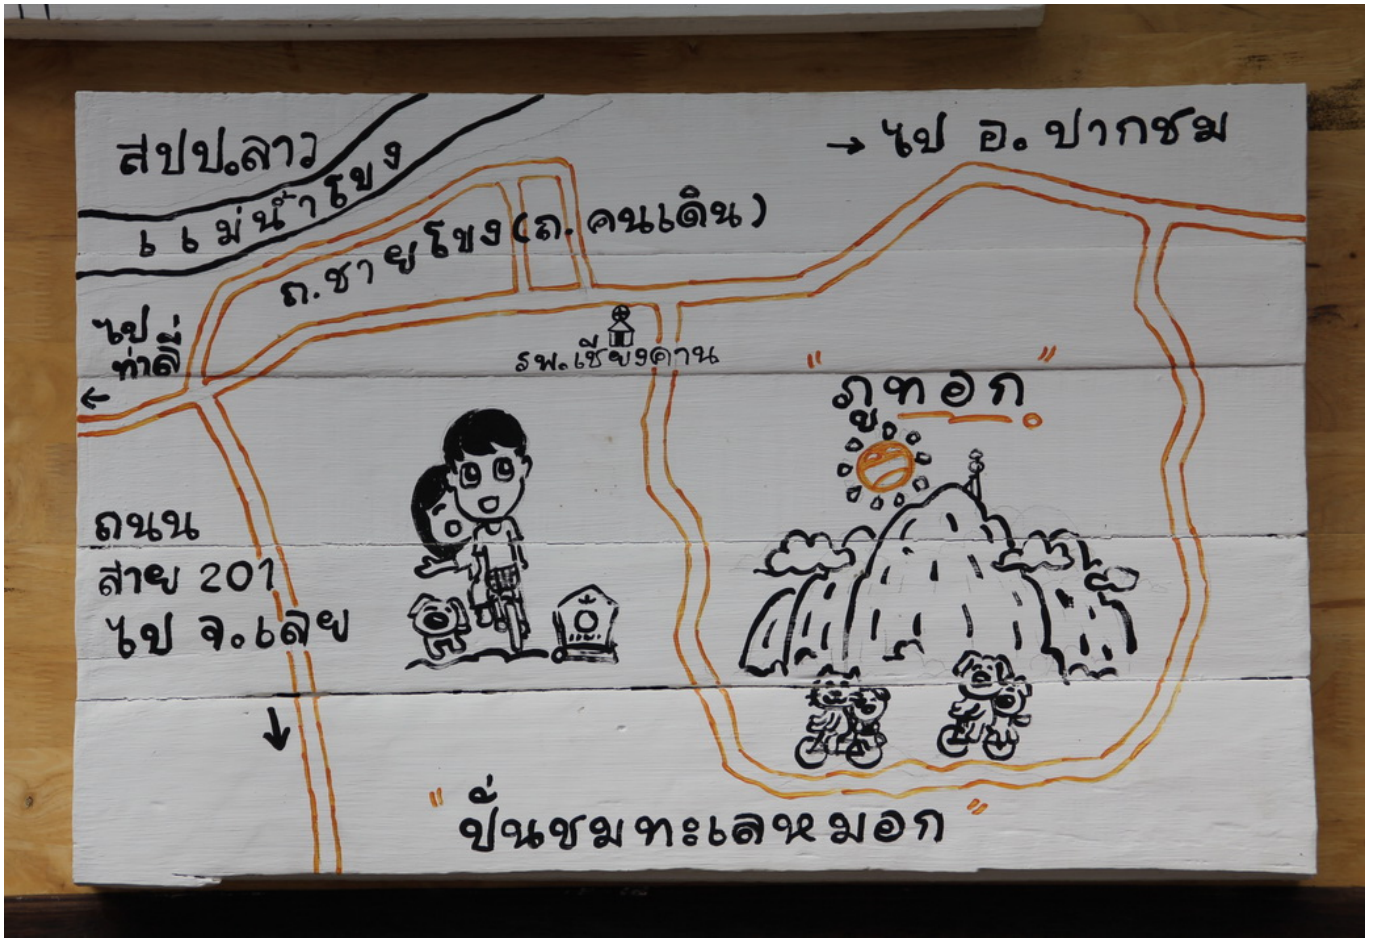 สปป.ลาว
แม่น้ำโขง
→ ไป อ. ปากชม
ถ.ชายโขง (ถ. คนเดิน)
ไป
ท่าลี่
←
รพ.เชียงคาน
"ภูทอก"
ถนน
สาย 201
ไป จ.เลย
"ปั่นชมทะเลหมอก"